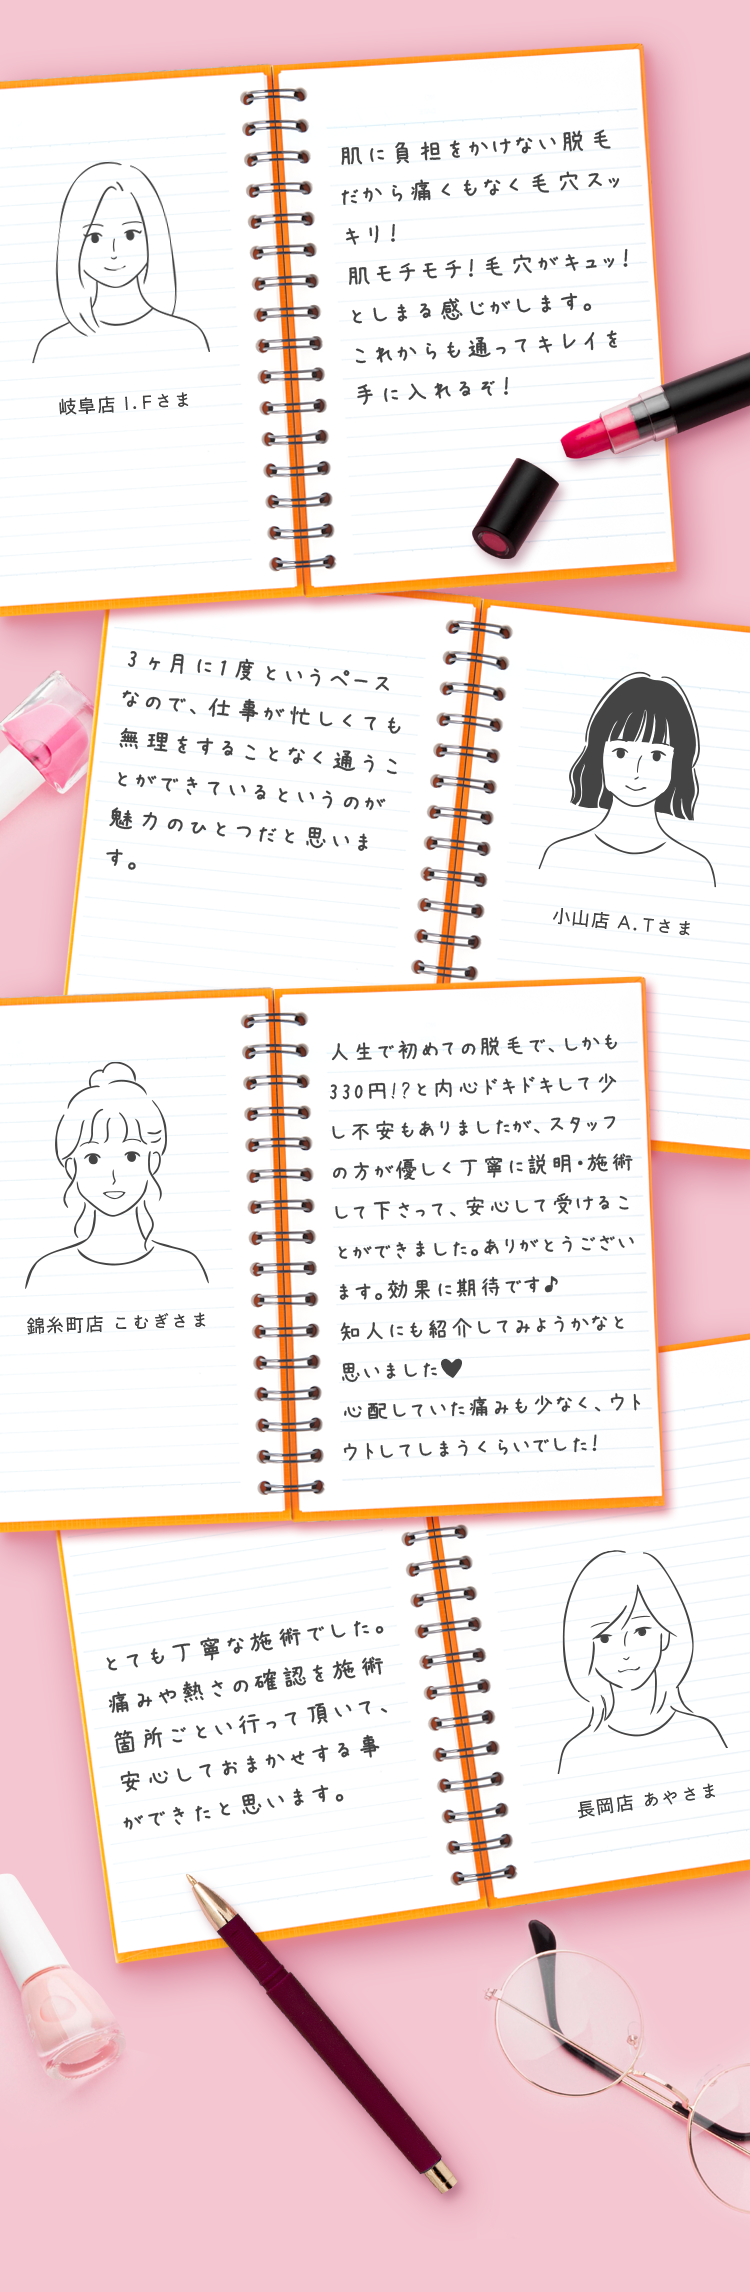 肌に負担をかけない脱毛
だから痛くもなく毛穴スッ
キリ!
肌モチモチ!毛穴がキュッ!
としまる感じがします。
これからも通ってキレイを
手に入れるぞ!
岐阜店 I.Fさま
3ヶ月に1度というペース
なので、仕事が忙しくても
無理をすることなく通うこ
とができているというのが
魅力のひとつだと思いま
す。
小山店 A.Tさま
人生で初めての脱毛で、しかも
330円!?と内心ドキドキして少
し不安もありましたが、スタッフ
の方が優しく丁寧に説明・施術
して下さって、安心して受けるこ
とができました。ありがとうござい
ます。効果に期待です♪
知人にも紹介してみようかなと
思いました♥
心配していた痛みも少なく、ウト
ウトしてしまうくらいでした!
錦糸町店 こむぎさま
とても丁寧な施術でした。
痛みや熱さの確認を施術
箇所ごとい行って頂いて、
安心しておまかせする事
ができたと思います。
長岡店 あやさま